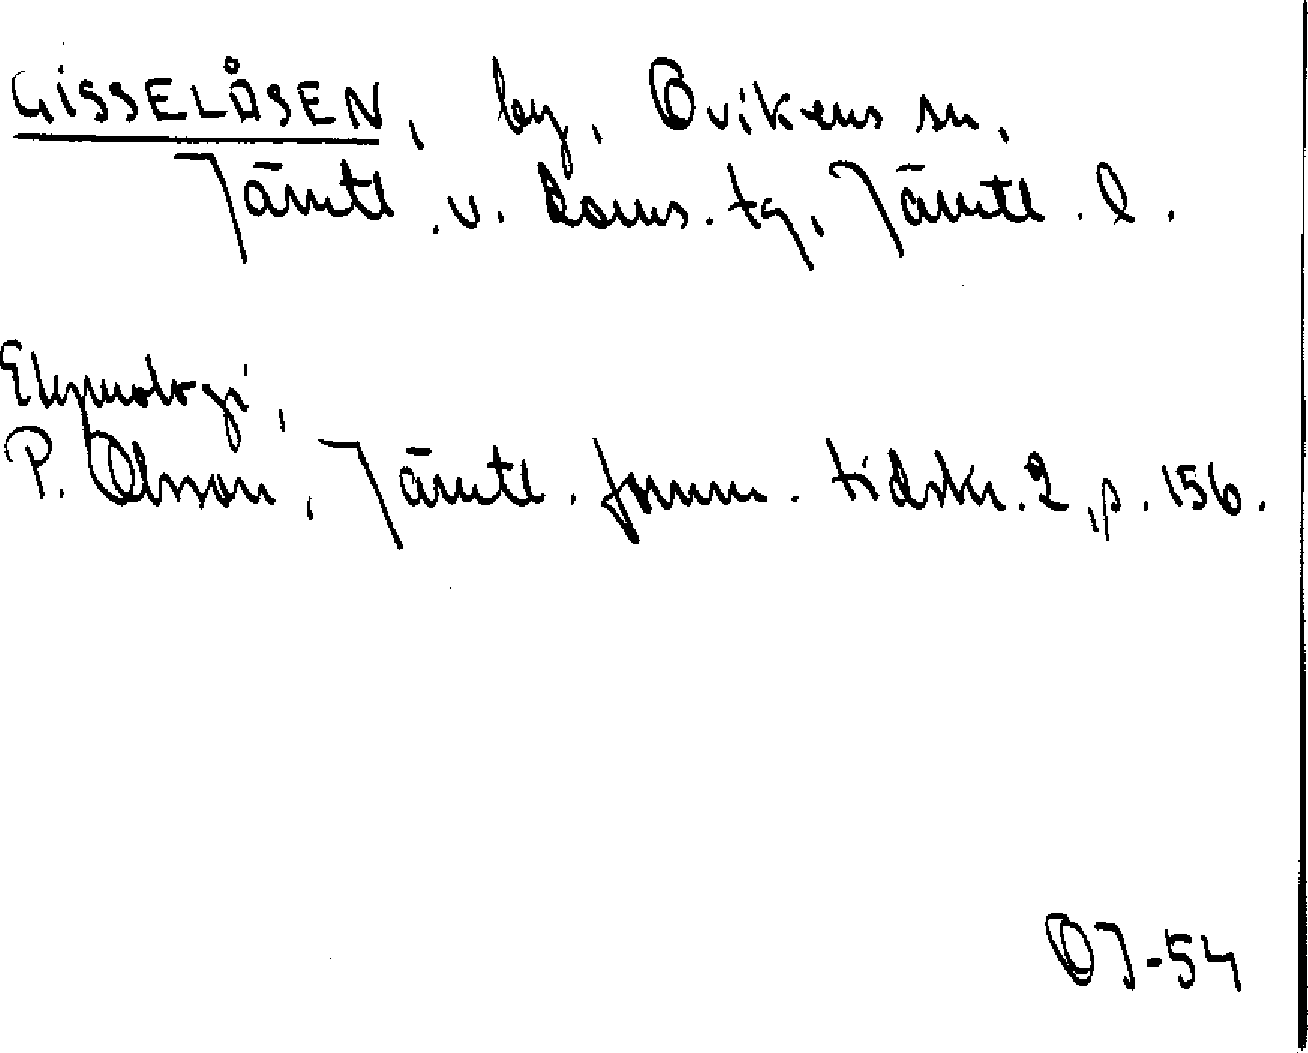 GISSELÅSEN, by, Ovikens sn,
Jämtl. v. doms. tg, Jämtl. l.
Etymologi,
P. Olsson, Jämtl. fornm. tidskr. 2, p. 156.
OJ-54